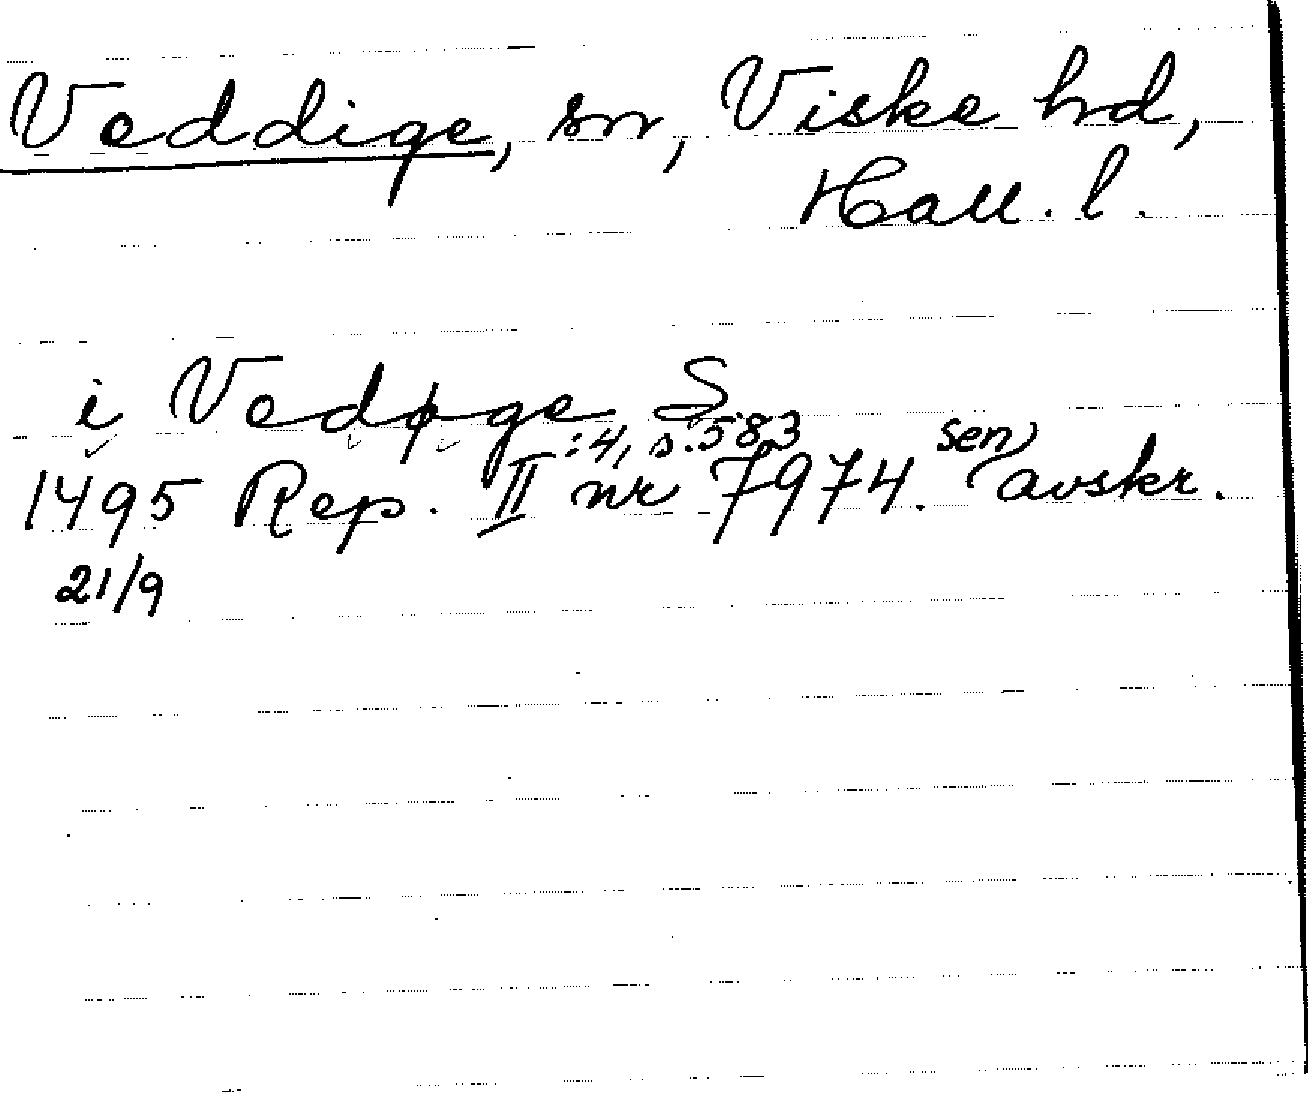 Veddige, sn, Viske hd,
Hall. l.
i Vedøge S
:4, s. 583 sen
1495 Rep. II nr 7974. avskr.
21/9